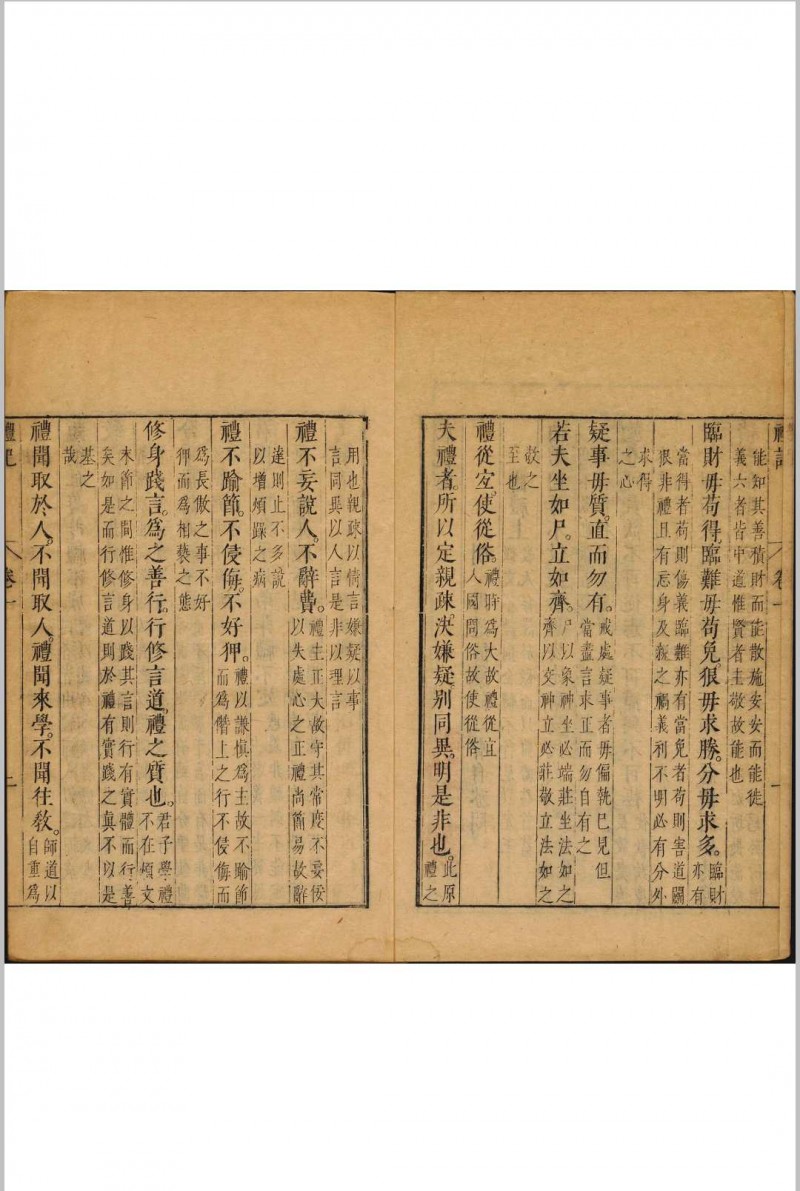 禮記
卷一
一
能知其善積財而能散施安安而能徙
義六者皆中道惟賢者主敬故能也
臨財毋苟得臨難毋苟免。狠毋求勝。分毋求多。臨財
亦有
當得者苟則傷義臨難亦有當免者苟則害道鬭
狠非禮且有忘身及親之禍義利不明必有分外
求得
之心
疑事毋質。直而勿有。戒處疑事者毋偏執已見但
當盡言求正而勿自有之
若夫坐如尸。立如齊。尸以象神坐必端莊坐法如之
齊以交神立必莊敬立法如之
敬之
至也
禮從宜。使從俗。禮時爲大故禮從宜
人國問俗故使從俗
夫禮者。所以定親疎。決嫌疑。別同異。明是非也。此原
禮之
用也親疎以倚言嫌疑以事
言同異以人言是非以理言
禮不妄說人。不辭費。禮主正大故守其常度不妄佞
以失處心之正禮尚簡易故辭
達則止不多說
以增煩躁之病
禮不踰節。不侵侮。不好狎。禮以謙慎爲主故不踰節
而爲僭上之行不侵侮而
爲長傲之事不好
狎而爲相褻之態
修身踐言。爲之善行。行修言道。禮之質也。君子學禮
不在煩文
末節之間惟修身以踐其言則行有實體而行善
矣如是而行修言道則於禮有實踐之眞不以是
基之
哉
禮聞取於人。不聞取人。禮聞來學。不聞往教。師道以
自重爲
禮記
卷一
一